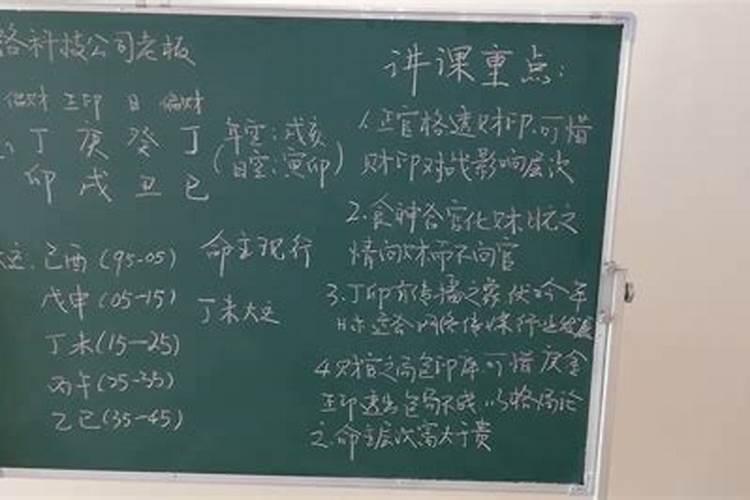 络科技公司老板
偏财 正印 日 偏财
丁 庚 癸 丁
卯 戌 丑 巳
年空:戌亥
(日空:寅卯)
己酉(95-05)
戊申(05-15)
丁未(15-25)
丙午(25-35)
乙巳(35-45)
命主现行
丁未大运
讲课重点:
1.正官格透财印,可惜
财印对战影响层次
2.食神合官化财
情向财而不向官
3.丁卯有传播之象
4.财官之局 印 可惜庚金
正印透出 以格局论
之.命主层次富大于贵